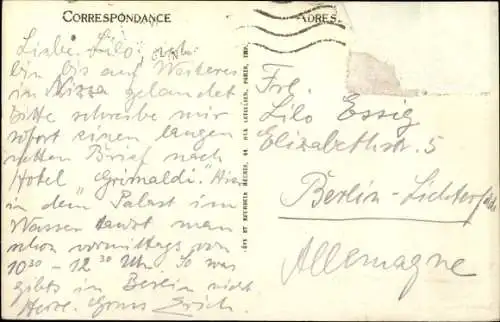 CORRESPONDANCE
ADRES
Liebe Lilo: ich
bin bis auf Weiteres
in Nizza gelandet
Bitte schreibe mir
sofort einen langen
netten Brief nach
Hotel "Grimaldi". Hier
in dem Palast im
Wasser tanzt man
schon vormittags von
10³⁰ - 12³⁰ Uhr. So was
gibts in Berlin nicht
Herzl. Gruss Erich.
Frl.
Lilo Essig
Elizabethstr. 5
Berlin-Lichterfelde
Allemagne